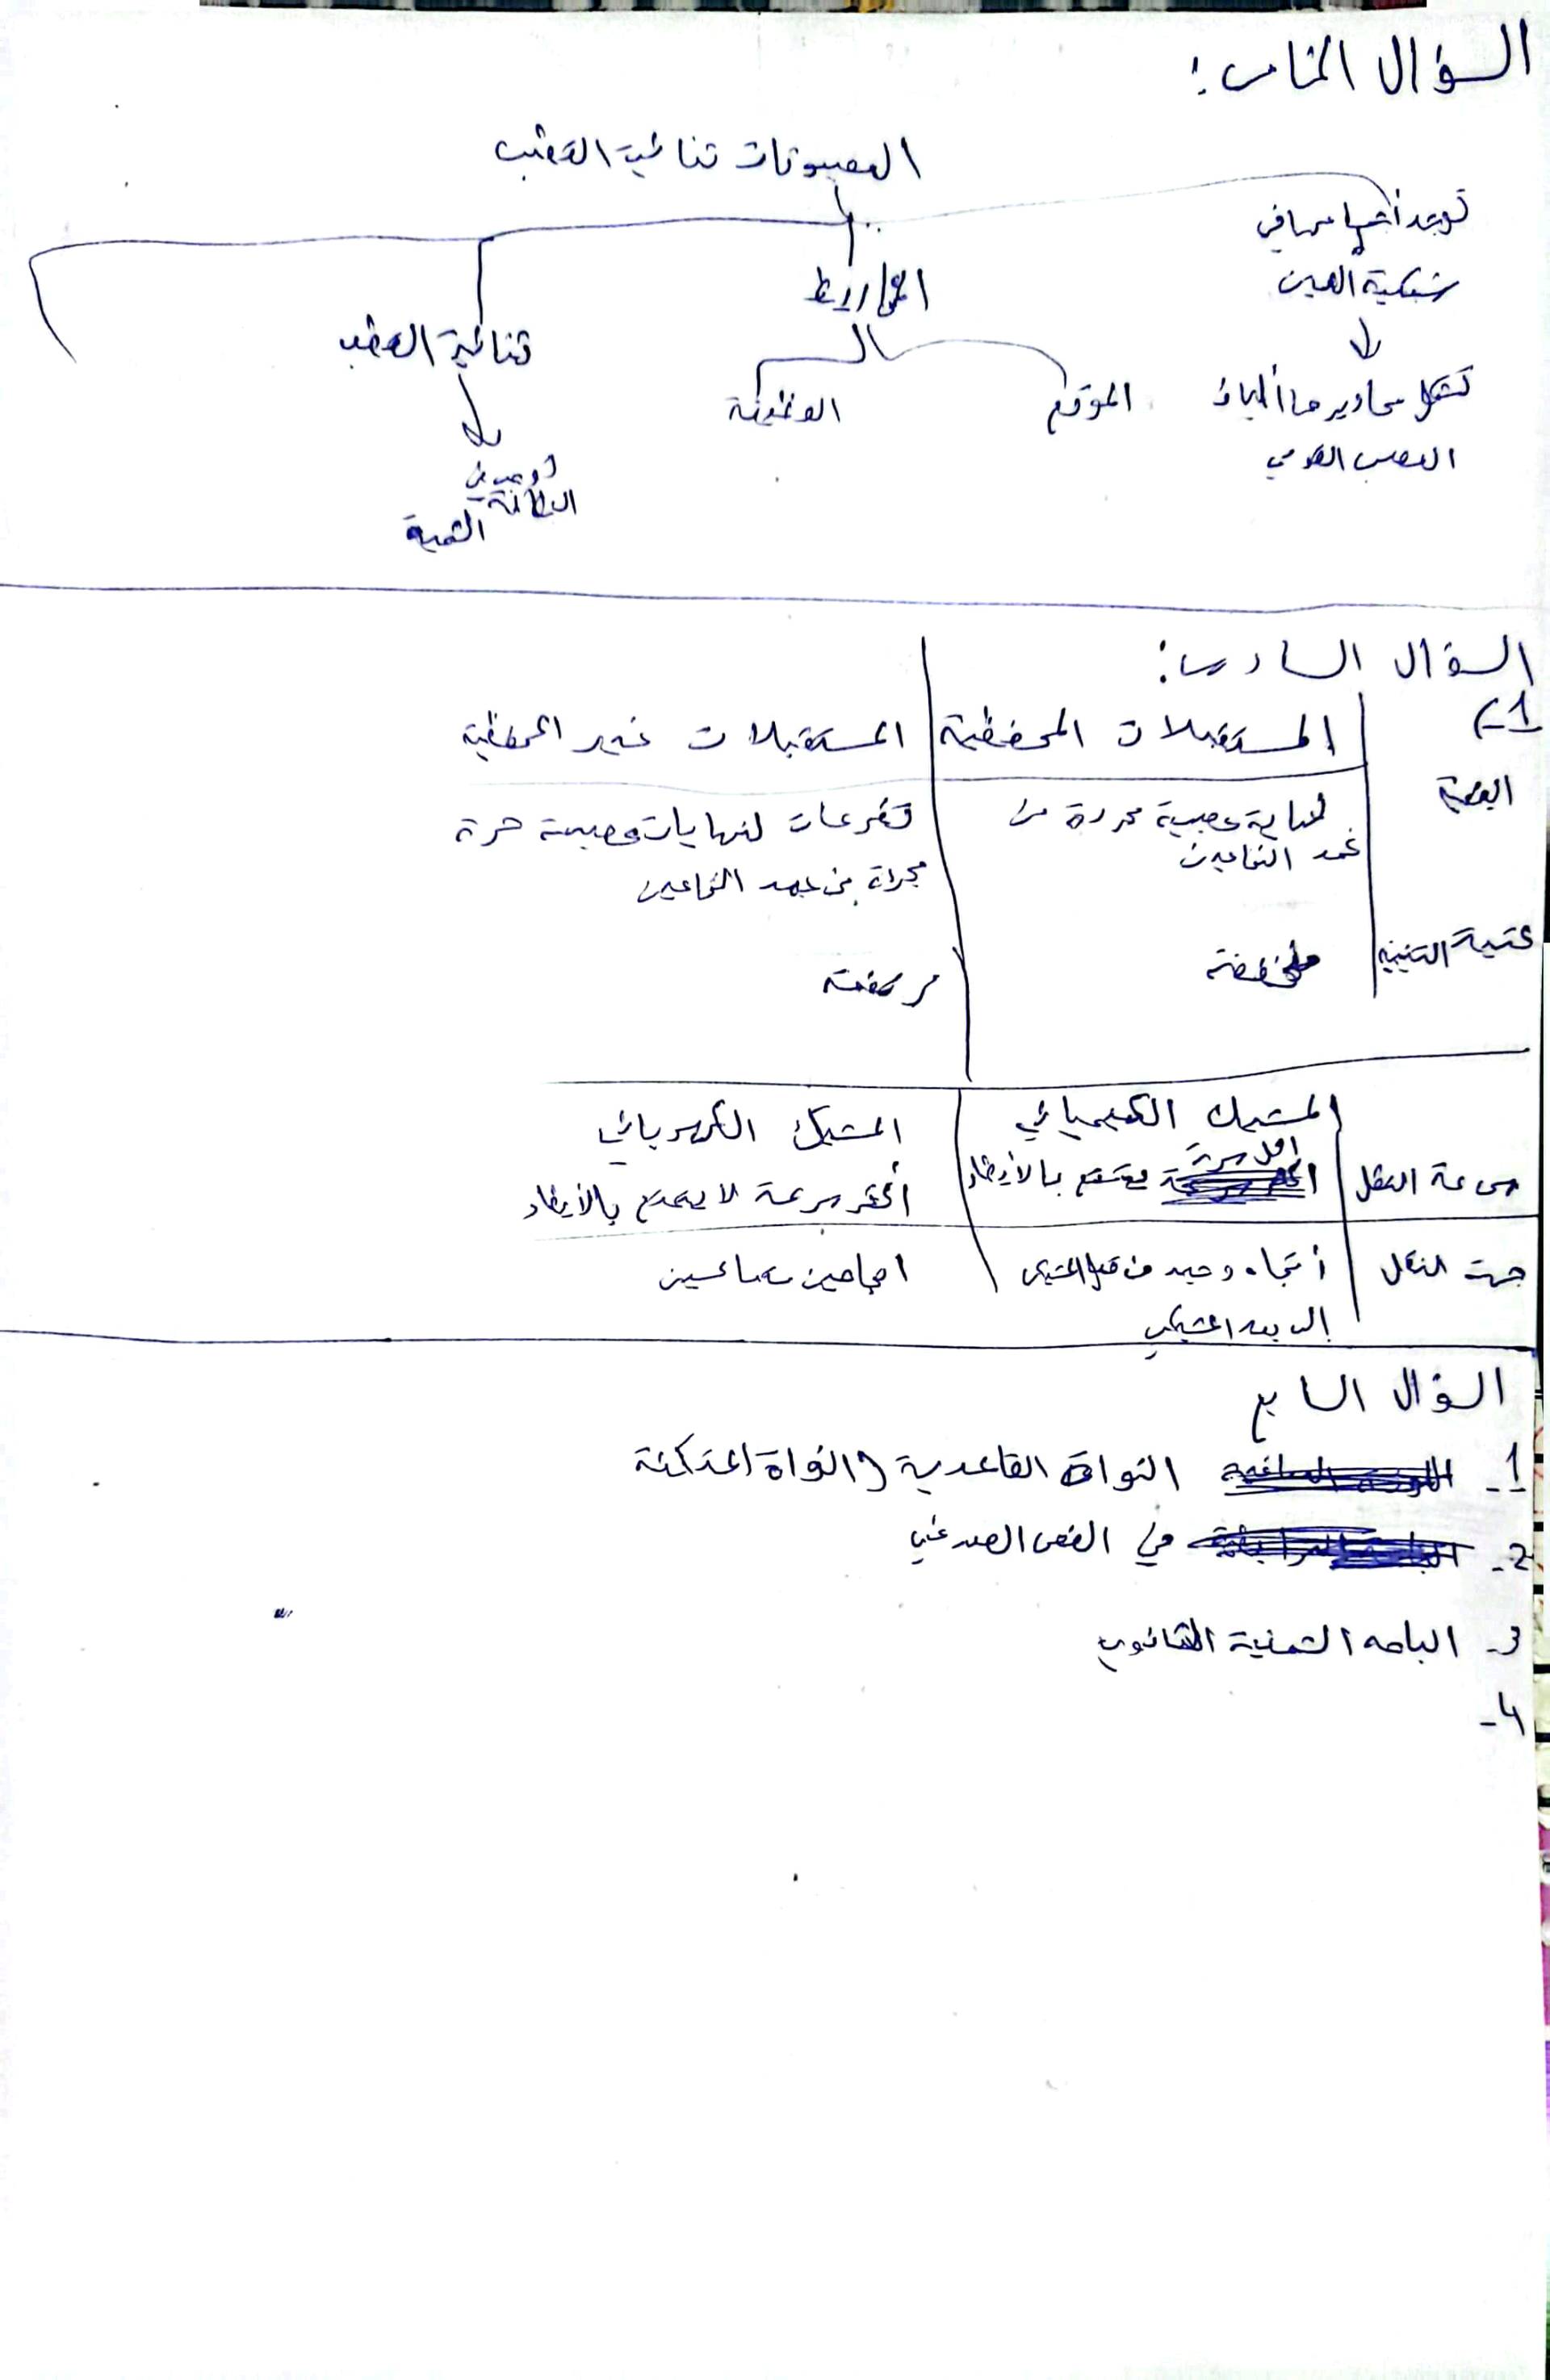 السؤال الخامس:
العصبونات ثنائية القطب
توجد أجسامها في
شبكية العين
تشكل محاويرها ألياف
العصب البصري
الموقع
الوظيفة
ثنائية القطب
توجد في
البطانة
الشمية
السؤال السادس:
1-
المستقبلات المحفظية
المستقبلات غير المحفظية
البنية
نهاية عصبية مجردة من
غمد النخاعين
تفرعات لنهايات عصبية حرة
مجردة من غمد النخاعين
عتبة التنبيه
منخفضة
مرتفعة
المشبك الكيميائي
المشبك الكهربائي
سرعة النقل
أقل سرعة
يتمتع بالأبطاء
أكثر سرعة لا يتمتع بالأبطاء
جهة النقل
أتجاه وحيد من قبل المشبكي
إلى بعد المشبكي
اتجاهين متعاكسين
السؤال السابع
1- النواة القاعدية (النواة المذنبة
2- في الفص الصدغي
3- الباحة الشمية الثانوية
4-